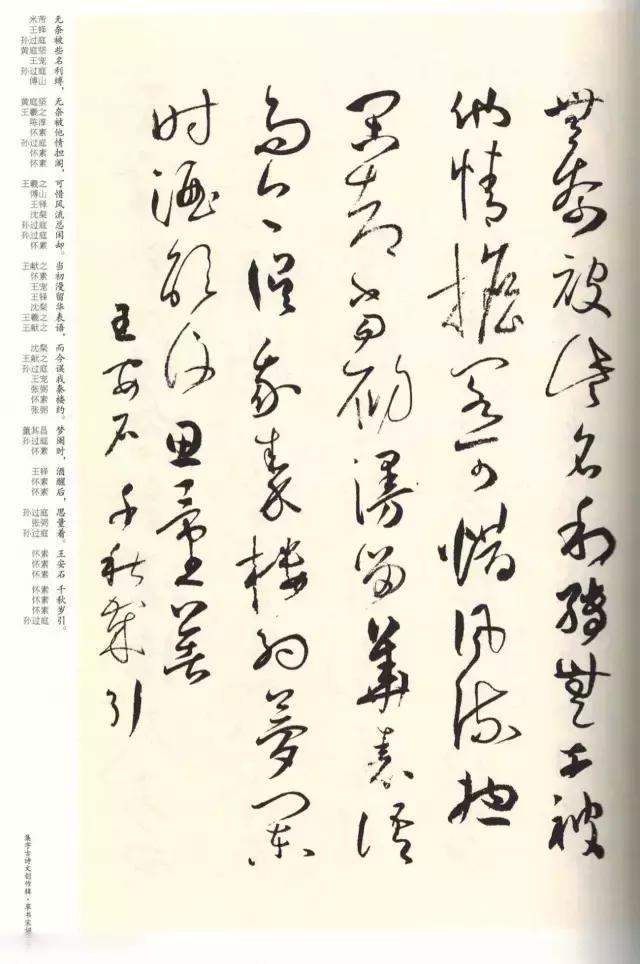 無奈被些名利縛無奈被
他情擔閣可惜風流總
閑却當初漫留華表語
而今誤我秦樓約夢闌
时酒醒後思量著
王安石千秋歲引
无奈被些名利缚，
无奈被他情担阁，
可惜风流总闲却。
当初漫留华表语，
而今误我秦楼约。
梦阑时，
酒醒后，
思量着。
王安石
千秋岁引。
米芾
王铎
孙过庭
黄庭坚
王宠
孙过庭
傅山
黄庭坚
王羲之
陈淳
怀素
孙过庭
怀素
怀素
王羲之
傅山
王铎
沈粲
孙过庭
孙过庭
怀素
王献之
怀素
王宠
王铎
沈粲
王羲之
王献之
沈粲
王献之
孙过庭
王宠
张弼
怀素
张弼
董其昌
孙过庭
怀素
王铎
怀素
怀素
孙过庭
张弼
孙过庭
怀素
怀素
怀素
怀素
怀素
怀素
孙过庭
集字古诗文创作辑·草书宋词